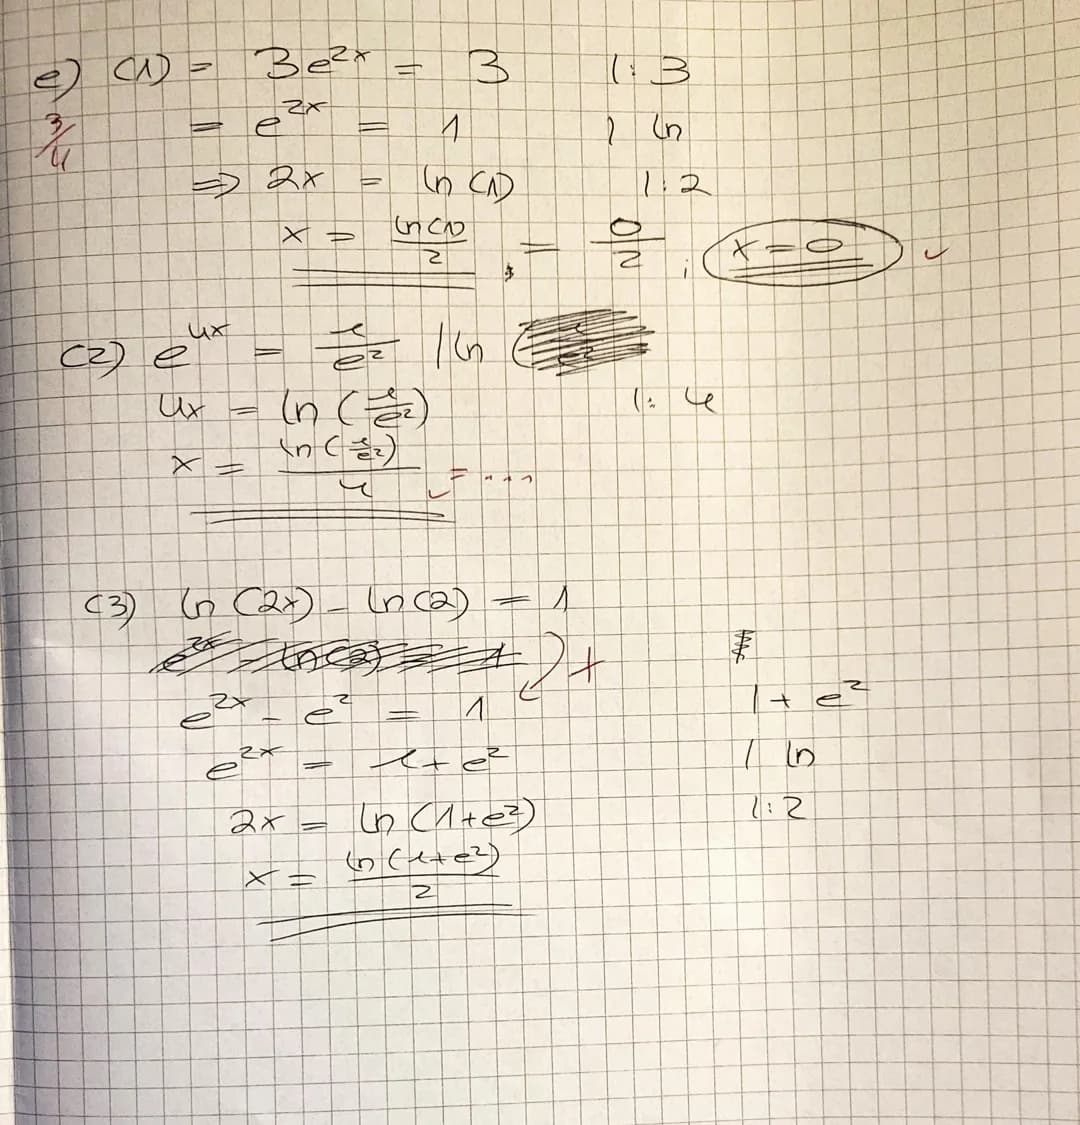 e) (1) = 3e^{2x} = 3 |: 3
3/4 = e^{2x} = 1 | ln
=> 2x = ln (1) |: 2
x = ln(1)/2 = 0/2 ; x = 0 ✓
(2) e^{4x} = 1/e^2 | ln
4x = ln (1/e^2) |: 4
x = ln (1/e^2)/4 ✓ = ...
(3) ln (2x) - ln (2) = 1
e^{2x} - e^2 = 1 | + e^2
e^{2x} = 1 + e^2 | ln
2x = ln (1+e^2) |: 2
x = ln (1+e^2)/2